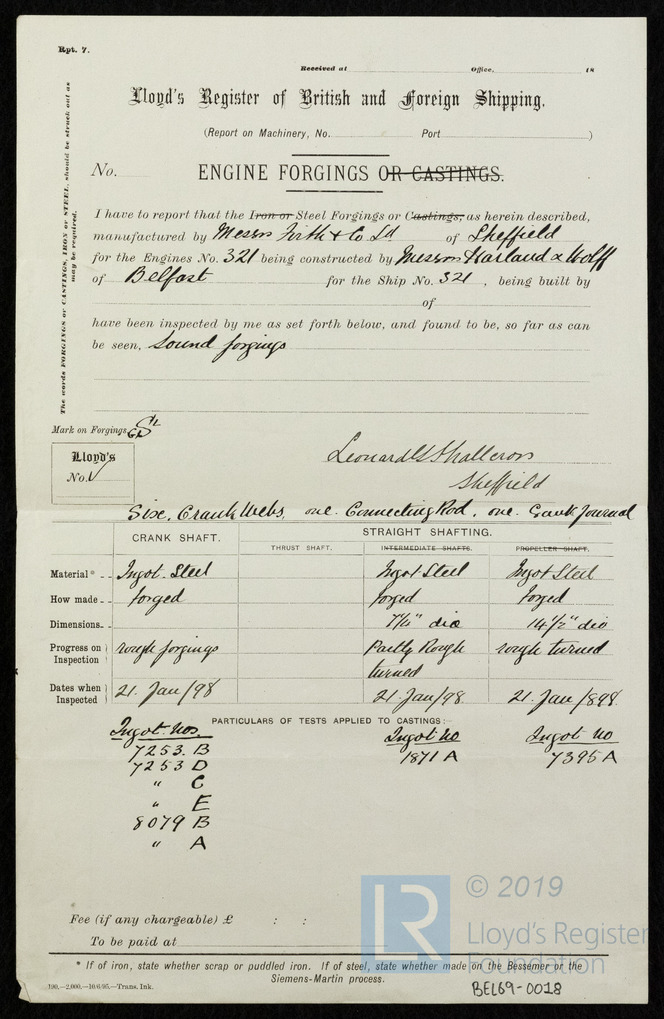 Rpt. 7.
Received at Office, 18
Lloyd's Register of British and Foreign Shipping.
(Report on Machinery, No. Port )
No. ENGINE FORGINGS OR CASTINGS.
The words FORGINGS or CASTINGS, IRON or STEEL, should be struck out as may be required.
I have to report that the Iron or Steel Forgings or Castings, as herein described,
manufactured by Messrs Firth & Co Ld of Sheffield
for the Engines No. 321 being constructed by Messrs Harland & Wolff
of Belfast for the Ship No. 321, being built by
of
have been inspected by me as set forth below, and found to be, so far as can
be seen, Sound forgings
Mark on Forgings
Lloyd's
No.
Sheffield
Six, Crank Webs, one. Connecting Rod, one. Crank Journal
CRANK SHAFT. STRAIGHT SHAFTING.
THRUST SHAFT. INTERMEDIATE SHAFTS. PROPELLER SHAFT.
Material* Ingot. Steel Ingot Steel Ingot Steel
How made forged forged forged
Dimensions dia 14 1/2" dia
Progress on Inspection rough forgings Partly Rough turned rough turned
Dates when Inspected 21. Jan/98 21. Jan/98. 21. Jan/898.
PARTICULARS OF TESTS APPLIED TO CASTINGS:—
Ingot. Nos. Ingot No Ingot No
7253. B 1871 A 7395 A
7253 D
" C
" E
8079 B
" A
Fee (if any chargeable) £ : :
To be paid at
* If of iron, state whether scrap or puddled iron. If of steel, state whether made on the Bessemer or the
Siemens-Martin process.
190.—2,000.—10/6/95.—Trans. Ink.
BEL69-0018
LR
© 2019
Lloyd's Register
Foundation